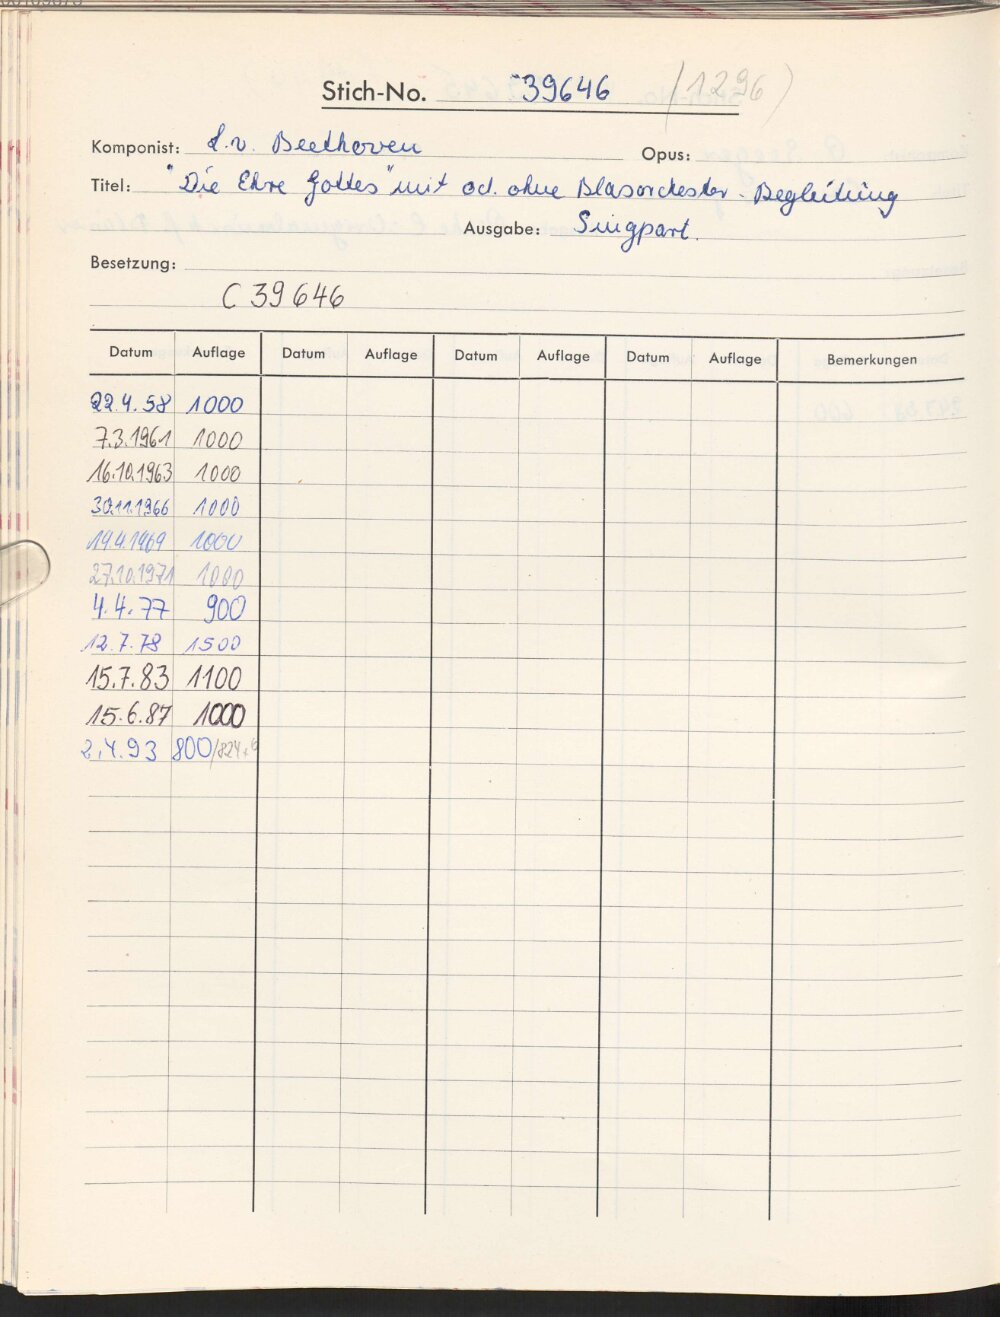 Stich-No. 39646 (1296)
Komponist: L.v. Beethoven Opus:
Titel: "Die Ehre Gottes" mit od. ohne Blasorchester-Begleitung
Ausgabe: Singpart.
Besetzung:
C 39646
Datum Auflage Datum Auflage Datum Auflage Datum Auflage Bemerkungen
22.4.58 1000
7.3.1961 1000
16.10.1963 1000
30.11.1966 1000
19.4.1969 1000
27.10.1971 1000
4.4.77 900
12.7.78 1500
15.7.83 1100
15.6.87 1000
2.4.93 800/824+6